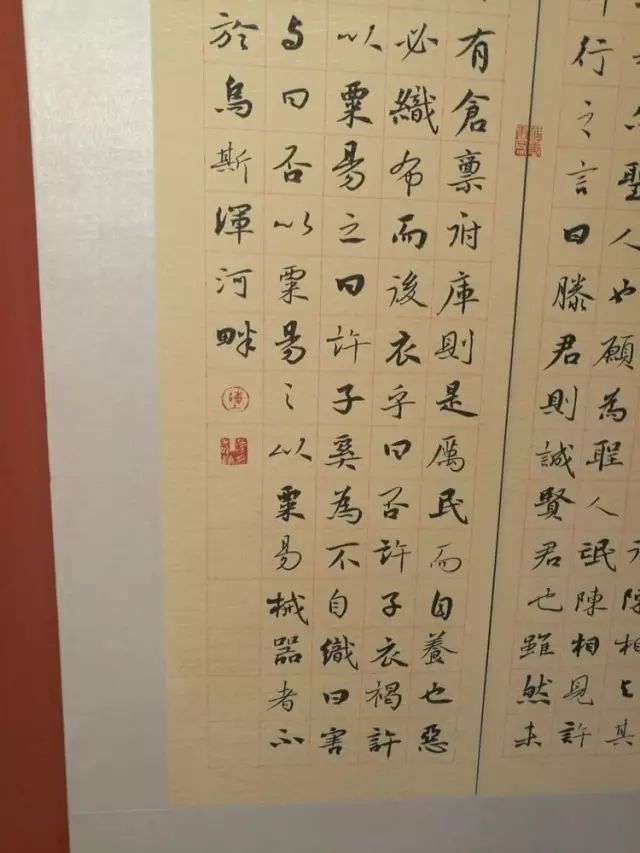 陳相与其
亦聖人也願為聖人氓陳相見許
行之言曰滕君則誠賢君也雖然未
有倉禀府庫則是厲民而自養也惡
必織布而後衣乎曰否許子衣褐許
以粟易之曰許子奚為不自織曰害
与曰否以粟易之以粟易械器者不
於烏斯渾河畔